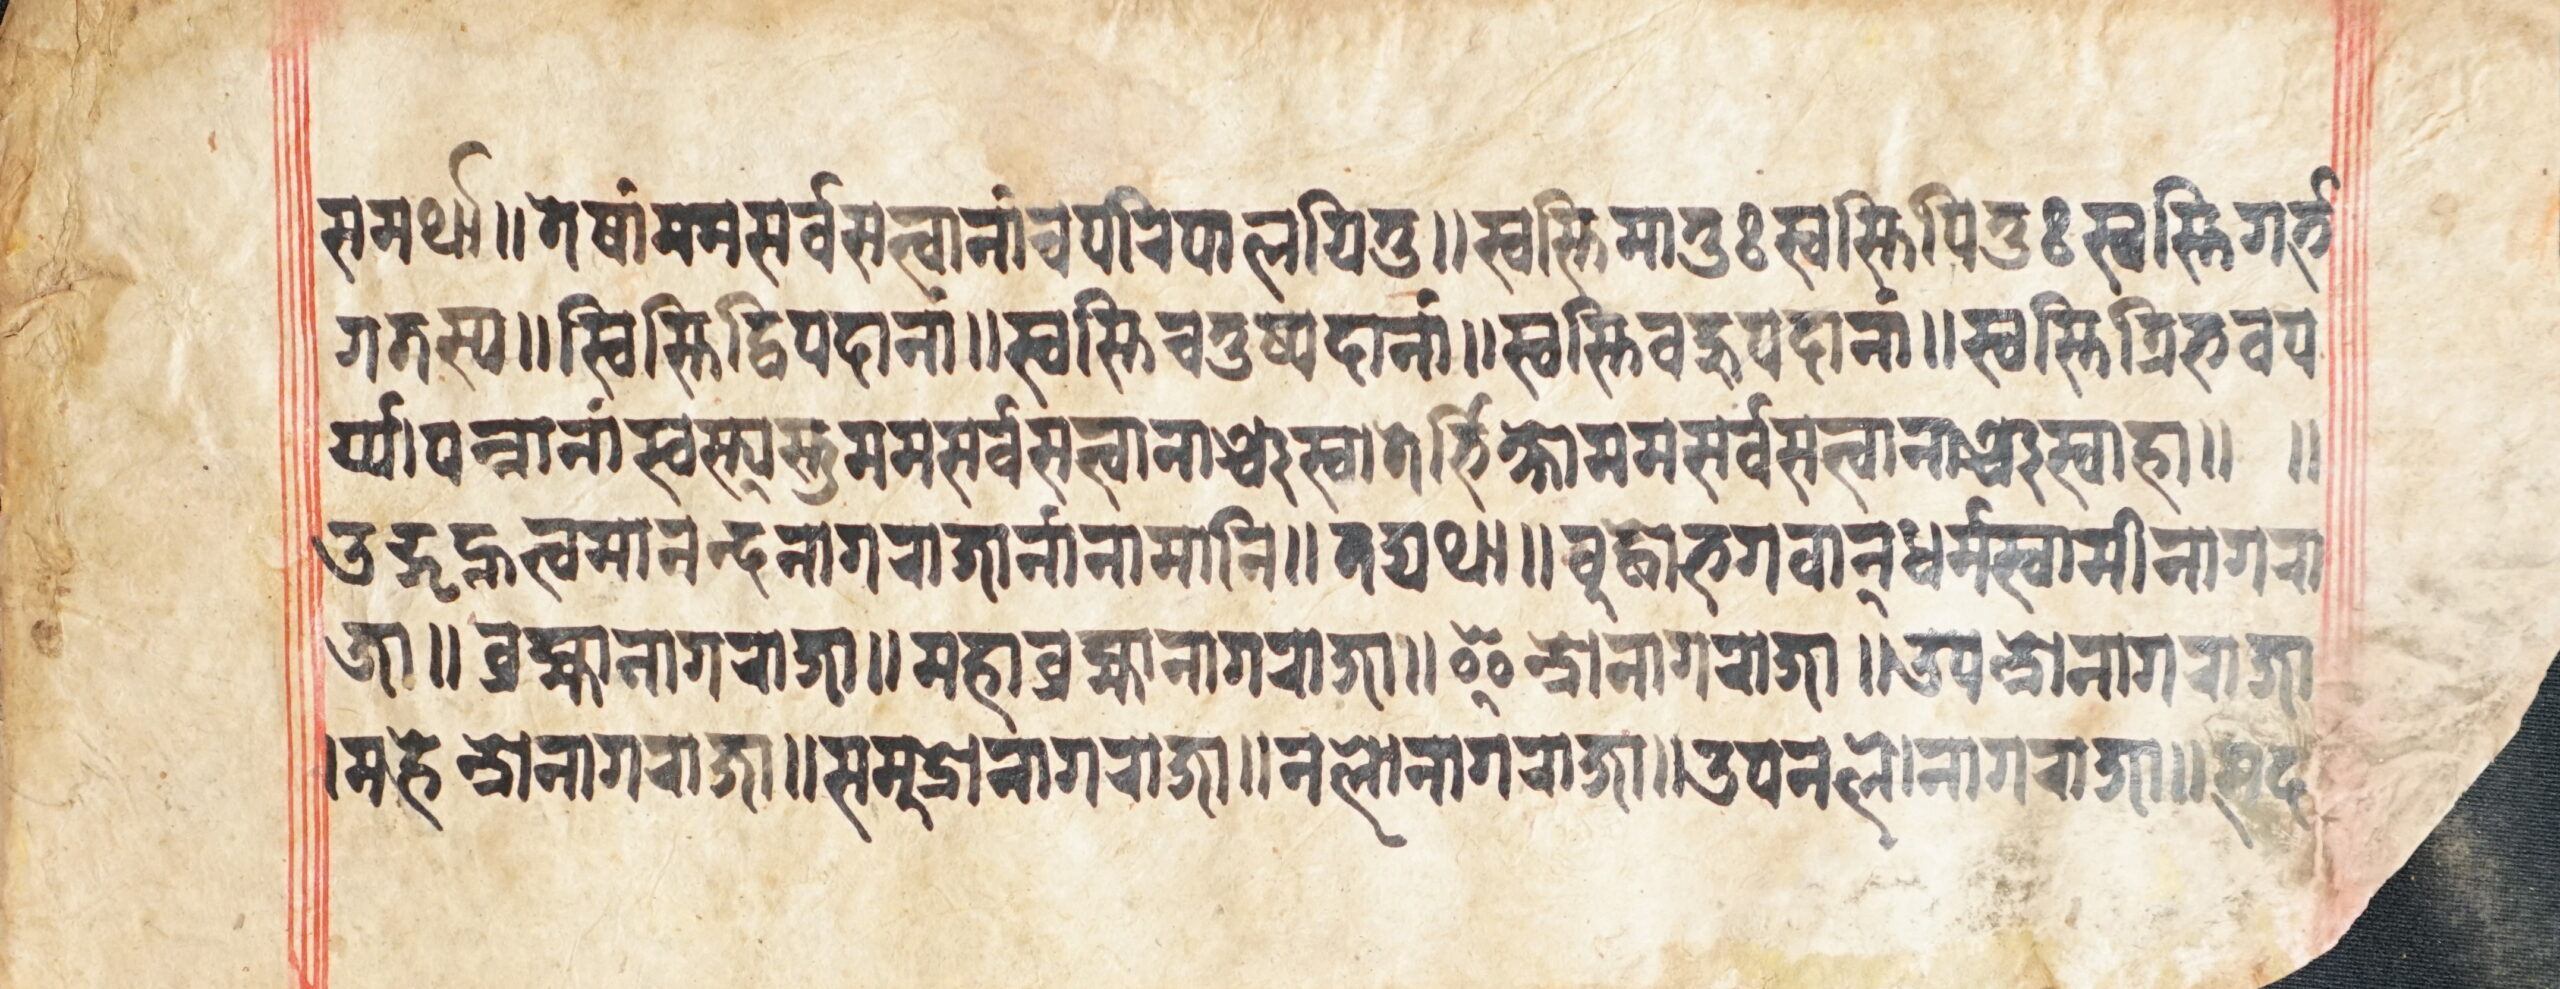 समर्था॥तेषांममसर्वसत्त्वानांचपरिपालयितु॥स्वस्तिमातुःस्वस्तिपितुःस्वस्तिगर्भ
गतस्य॥स्विस्तिद्विपदानां॥स्वस्तिचतुष्पदानां॥स्वस्तिवहुपदानां॥स्वस्तित्रिभवप
र्य्यापन्नानांस्वस्त्यस्तुममसर्वसत्त्वानाञ्चःस्वातेर्भिक्षोममसर्वसत्त्वानाञ्चःस्वाहा॥ ॥
उद्गृह्नत्वमानन्दनागराजार्नानामानि॥तद्यथा॥वुद्धोभगवान्धर्मस्वामीनागरा
जा॥व्रह्मानागराजा॥महाव्रह्मानागराजा॥इन्द्रोनागराजा॥उपन्द्रोनागराजा
।महेन्द्रोनागराजा॥समुद्रोनागराजा॥नलोनागराजा॥उपनलोनागराजा॥